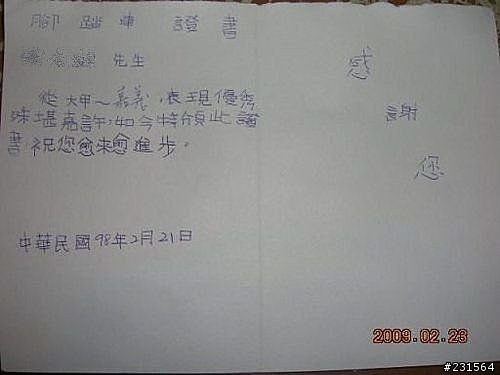 腳踏車 證書
先生
從大甲~嘉義,表現優秀
殊堪嘉許,如今特頒此證
書祝您愈來愈進步。
中華民國98年2月21日
感
謝
您
2009.02.23
#231564